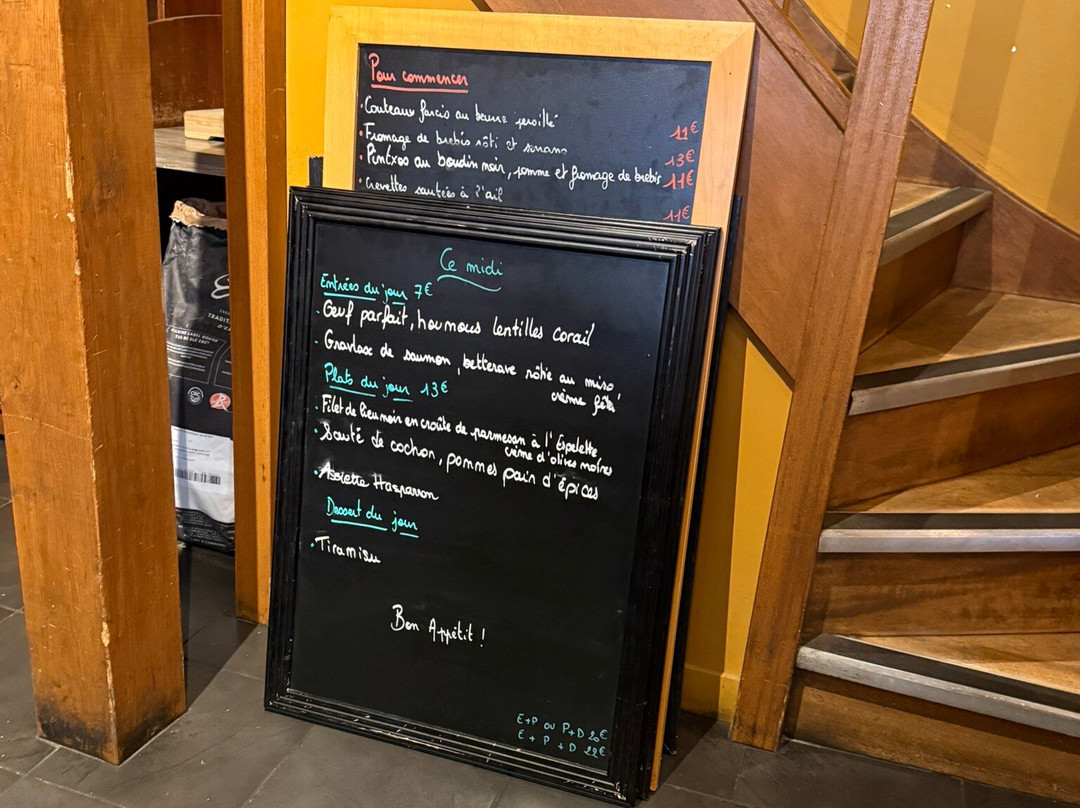 Pour commencer
• Couteaux farcis au beurre persillé 11€
• Fromage de brebis rôti et 13€
• Pintxos au boudin noir, pomme et fromage de brebis 11€
• Crevettes sautées à l'ail 11€
Ce midi
Entrées du jour 7€
• Oeuf parfait, houmous lentilles corail
• Gravlax de saumon, betterave rôtie au miso
crème
Plats du jour 13€
• Filet de lieu noir en croûte de parmesan à l'Espelette,
crème d'olives noires
• Sauté de cochon, pommes pain d'épices
• Assiette Hasparren
Dessert du jour
• Tiramisu
Bon Appétit !
E+P ou P+D 20€
E + P + D 22€